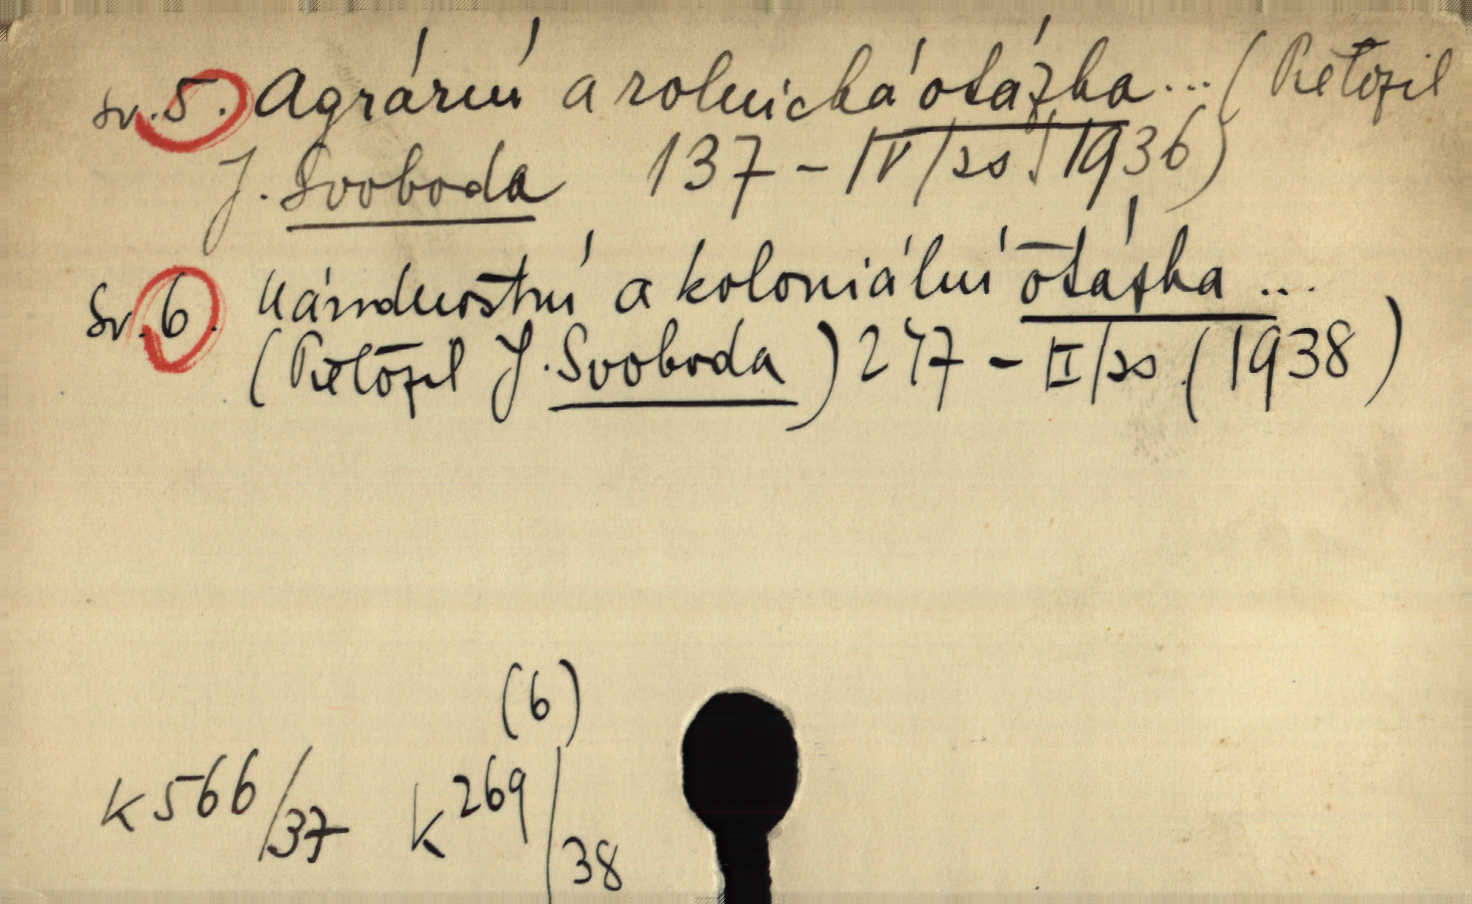 sv. 5. Agrární a rolnická otázka... (Přeložil
J. Svoboda 137 - IV/ss. (1936)
sv. 6. Národnostní a koloniální otázka ...
(Přeložil J. Svoboda) 247 - II/ss. (1938)
(6)
K 566/37 K 269/38